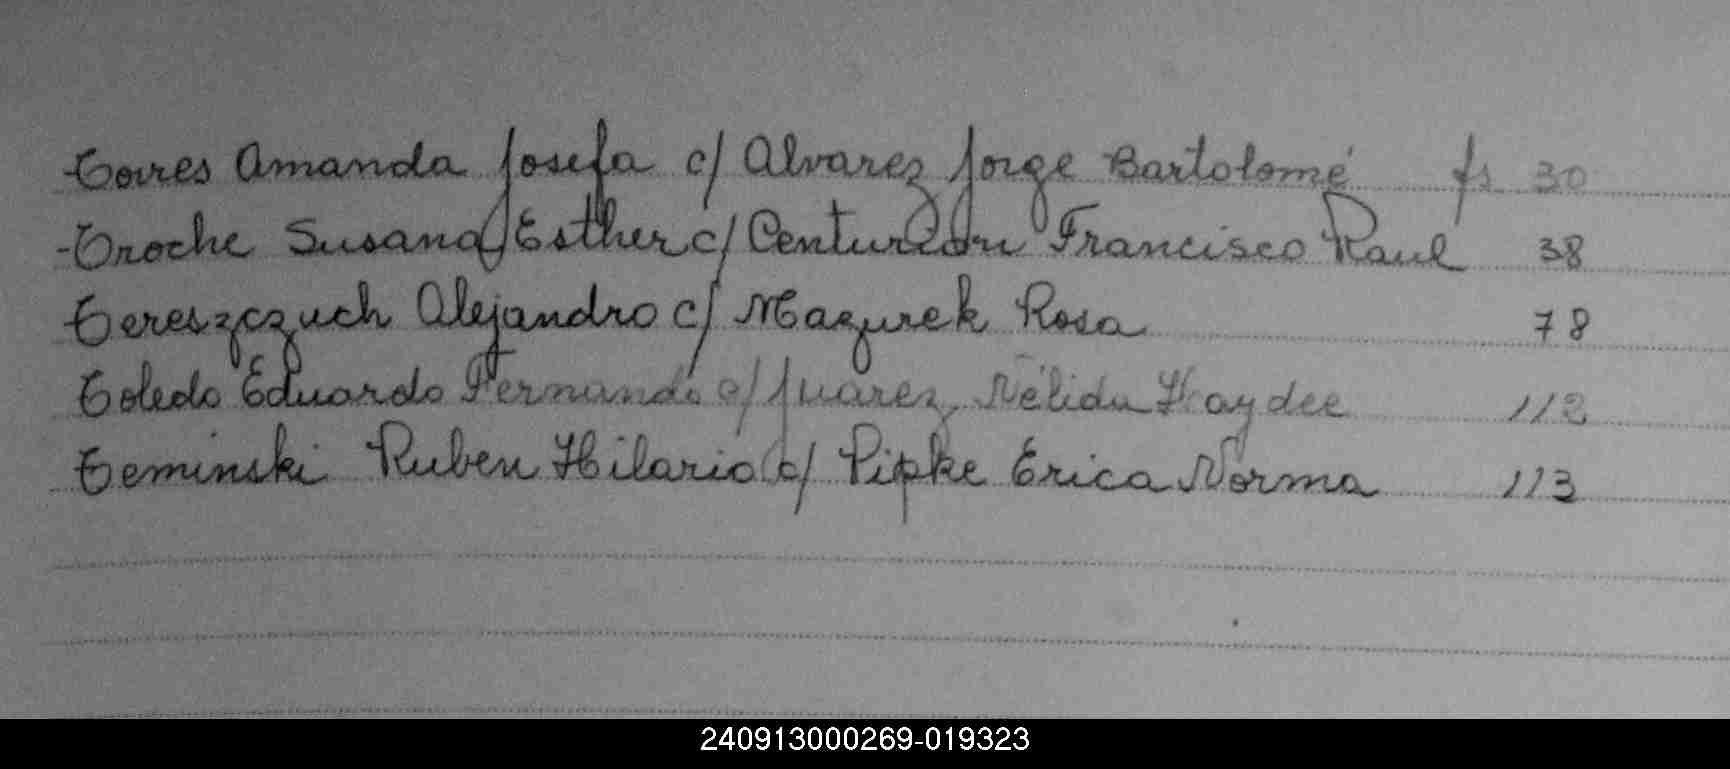 Torres Amanda Josefa c/ Alvarez Jorge Bartolomé fs 30
-Troche Susana Esther c/ Centurion Francisco Raul 38
Tereszczuch Alejandro c/ Mazurek Rosa 78
Toledo Eduardo Fernando c/ Juarez Nélida Haydee 112
Teminski Ruben Hilario c/ Pipke Erica Norma 113
240913000269-019323